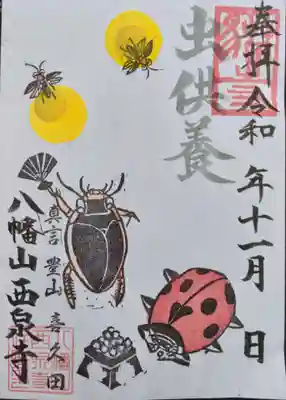 奉拝 令和 年十一月 日
虫供養
真言 豊山 喜久田
八幡山西泉寺